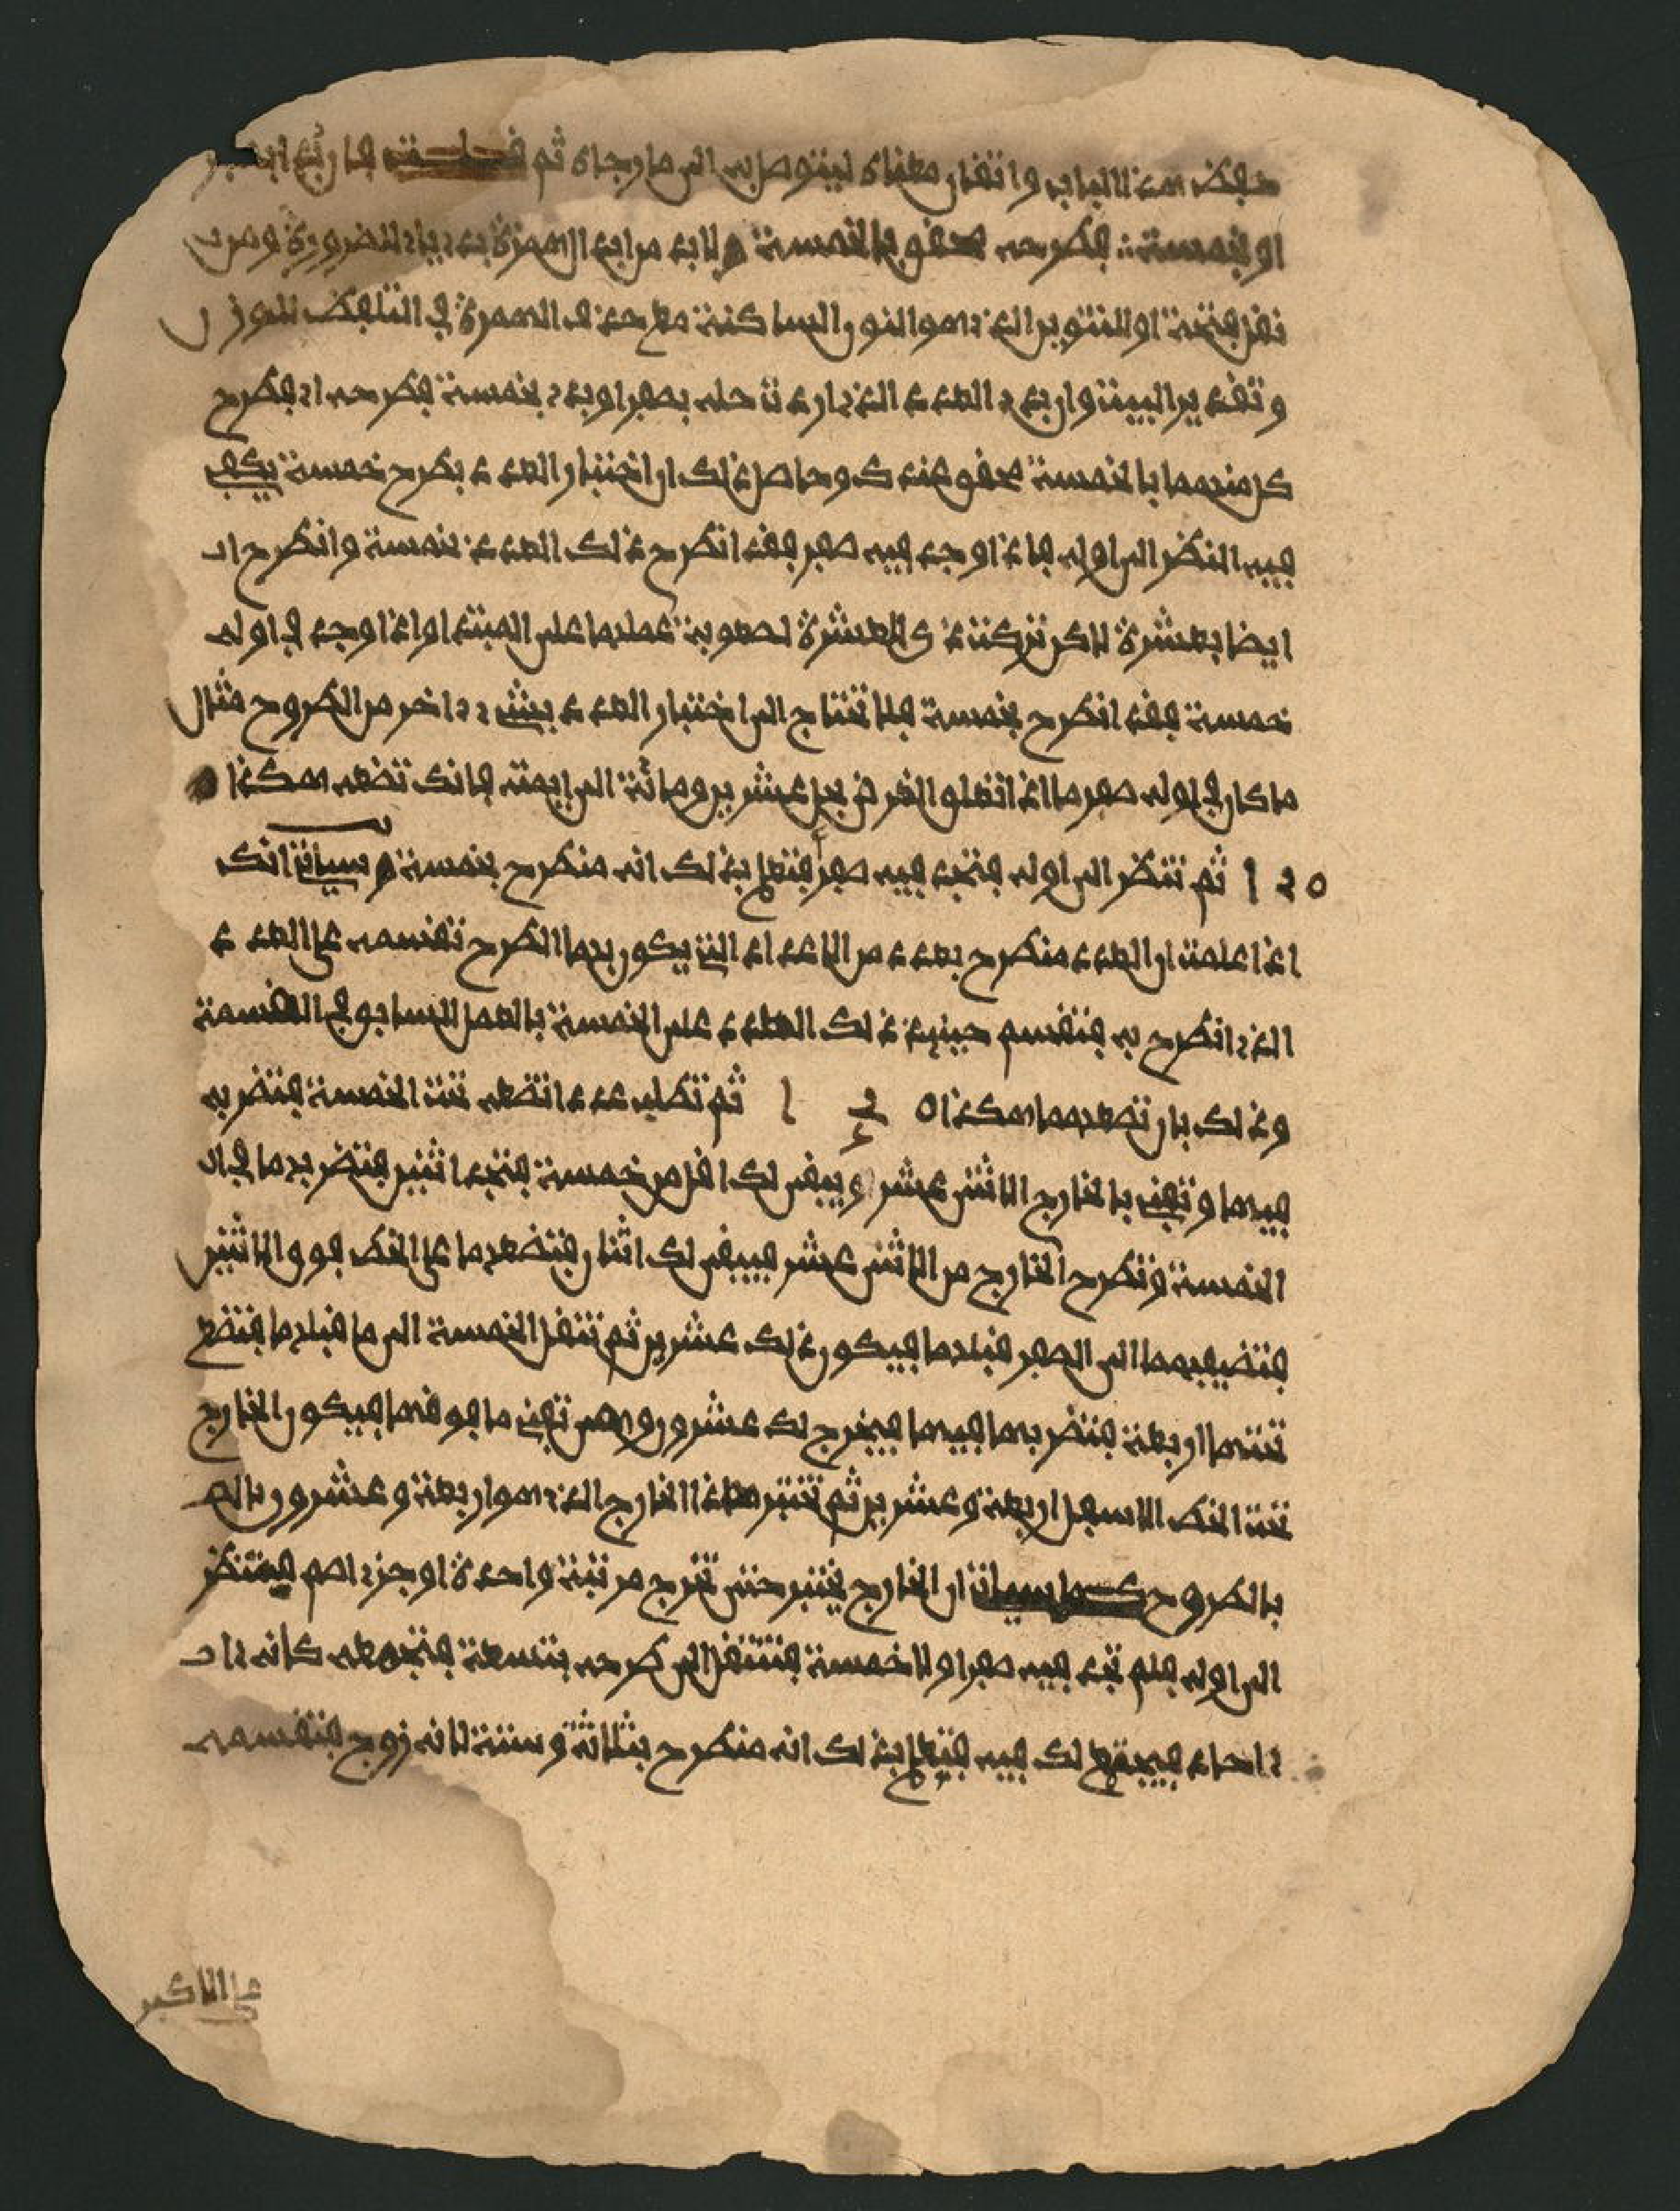 حفظ هذا الباب واتقان معناه ليتوصل به الى ما رجاه ثم فان ابتدر
او بخمسة فطرحه محقق بالخمسة ولابد من ابدال الهمزة بعد ياء للضرورة ومن
نقل فتحة او للتنوين الذي هو النون الساكنة مع حذف الهمزة في التلفظ للوزن
وتقدير البيت وان بدء العدد الذي اردت حله بصفر او بدء بخمسة فطرحه اي فطرح
كل منهما بالخمسة محقق عندك وحاصل ذلك ان اختبار العدد بطرح خمسة يكفي
فيه النظر الى اوله فاذا وجد فيه صفر فقد انطرح ذلك العدد بخمسة وانطرح
ايضا بعشرة لاكن تركت ذكر العشرة لصعوبة عملها على المبتدا واذا وجد في اوله
خمسة فقد انطرح بخمسة فلا تحتاج الى اختبار العدد بشيء اخر من الطروح مثال
ما كان في اوله صفر ما اذا تعلق الغرض بحل عشرين ومائة الى ايمته فانك تضعه هكذا
١٢٠ ثم تنظر الى اوله فتجد فيه صفرا فتعلم بذلك انه منطرح بخمسة وسياتي انك
اذا علمت ان العدد منطرح بعدد من الاعداد التي يكون بها الطرح تقسمه على العدد
الذي انطرح به فتقسم حينئذ ذلك العدد على الخمسة بالعمل السابق في القسمة
وذلك بان تضعهما هكذا ١ ٢ ٠ ثم تطلب عددا تضعه تحت الخمسة فتضربه
فيها وتفني بالخارج الاثني عشر ويبقى لك اقل من خمسة فتجد اثنين فتضربها في
الخمسة وتطرح الخارج من الاثني عشر فيبقى لك اثنان فتضعهما على الخط فوق الاثنين
فتضيفهما الى الصفر قبلها فيكون ذلك عشرين ثم تنقل الخمسة الى ما قبلها فتضع
تحتها اربعة فتضربها فيها فيخرج لك عشرون وهي تفني ما فوقها فيكون الخارج
تحت الخط الاسفل اربعة وعشرين ثم تختبر هذا الخارج الذي هو اربعة وعشرون
بالطروح لان الخارج يختبر حتى تخرج مرتبة واحدة او جزء اصم فتنظر
الى اوله فلم تجد فيه صفرا ولا خمسة فتنتقل الى طرحه بتسعة فتجمعه كانه
احاد فيجتمع لك فيه فتعلم بذلك انه منطرح بثلاثة وستة لانه زوج فتقسمه
على الاكبر